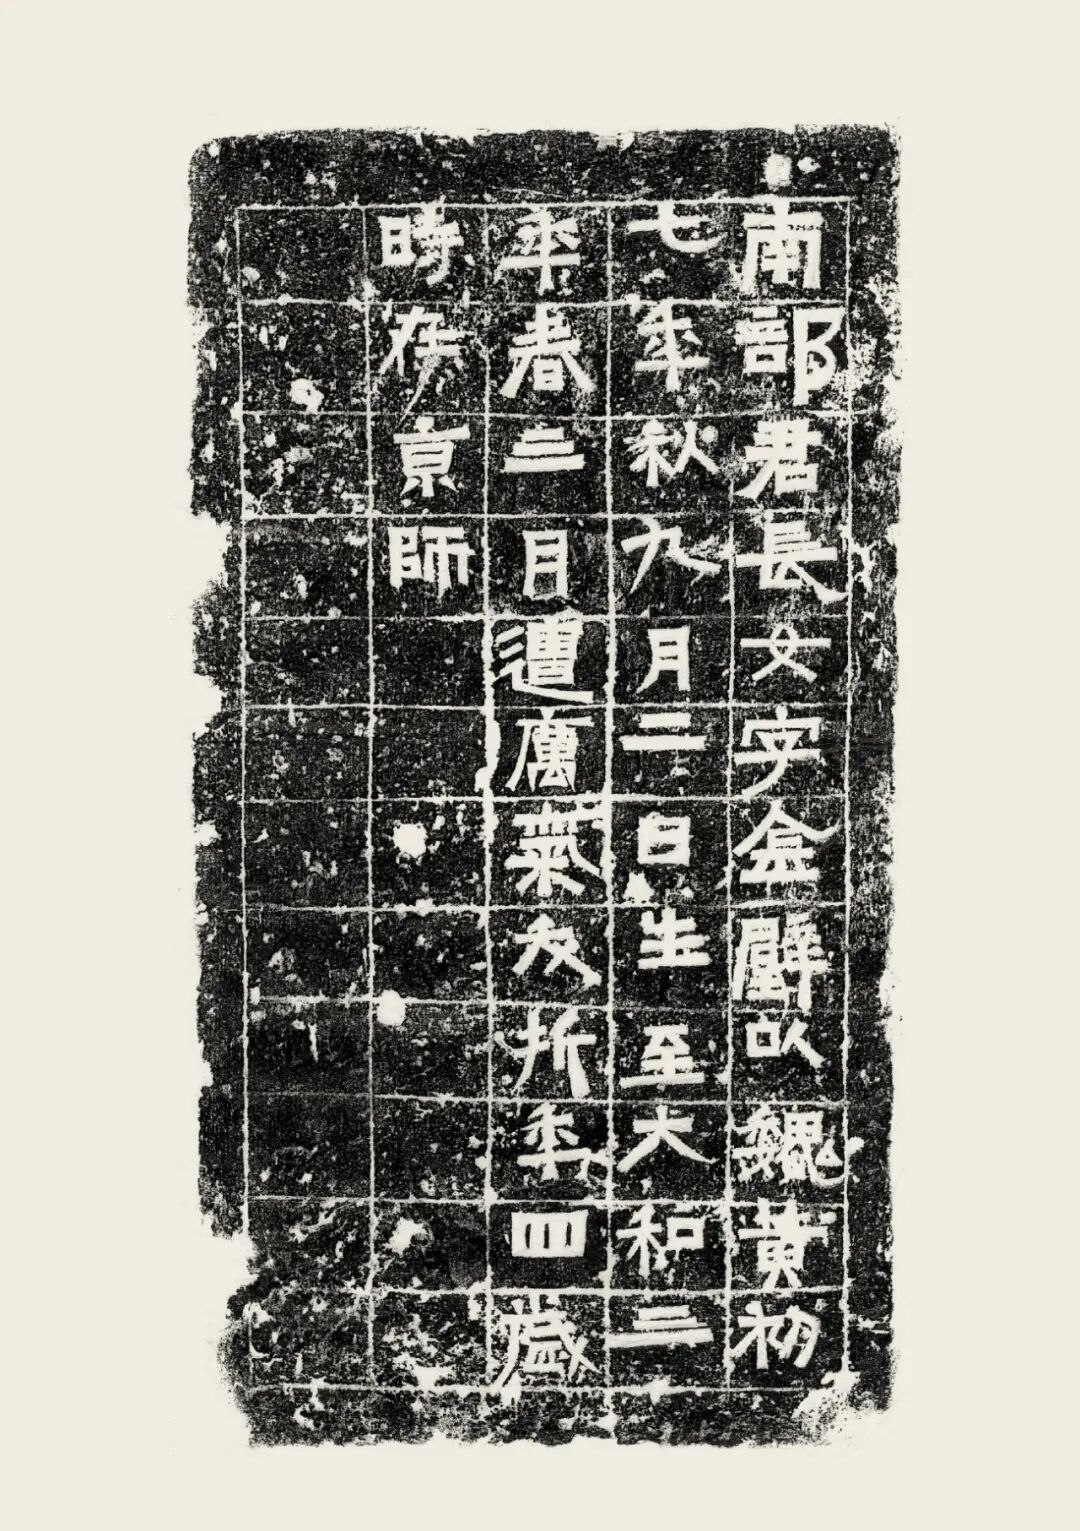 南部君長女字金以魏黃初
七年秋九月二日生至大和三
年春三月遭厲氣夭折年四歲
時在亰師